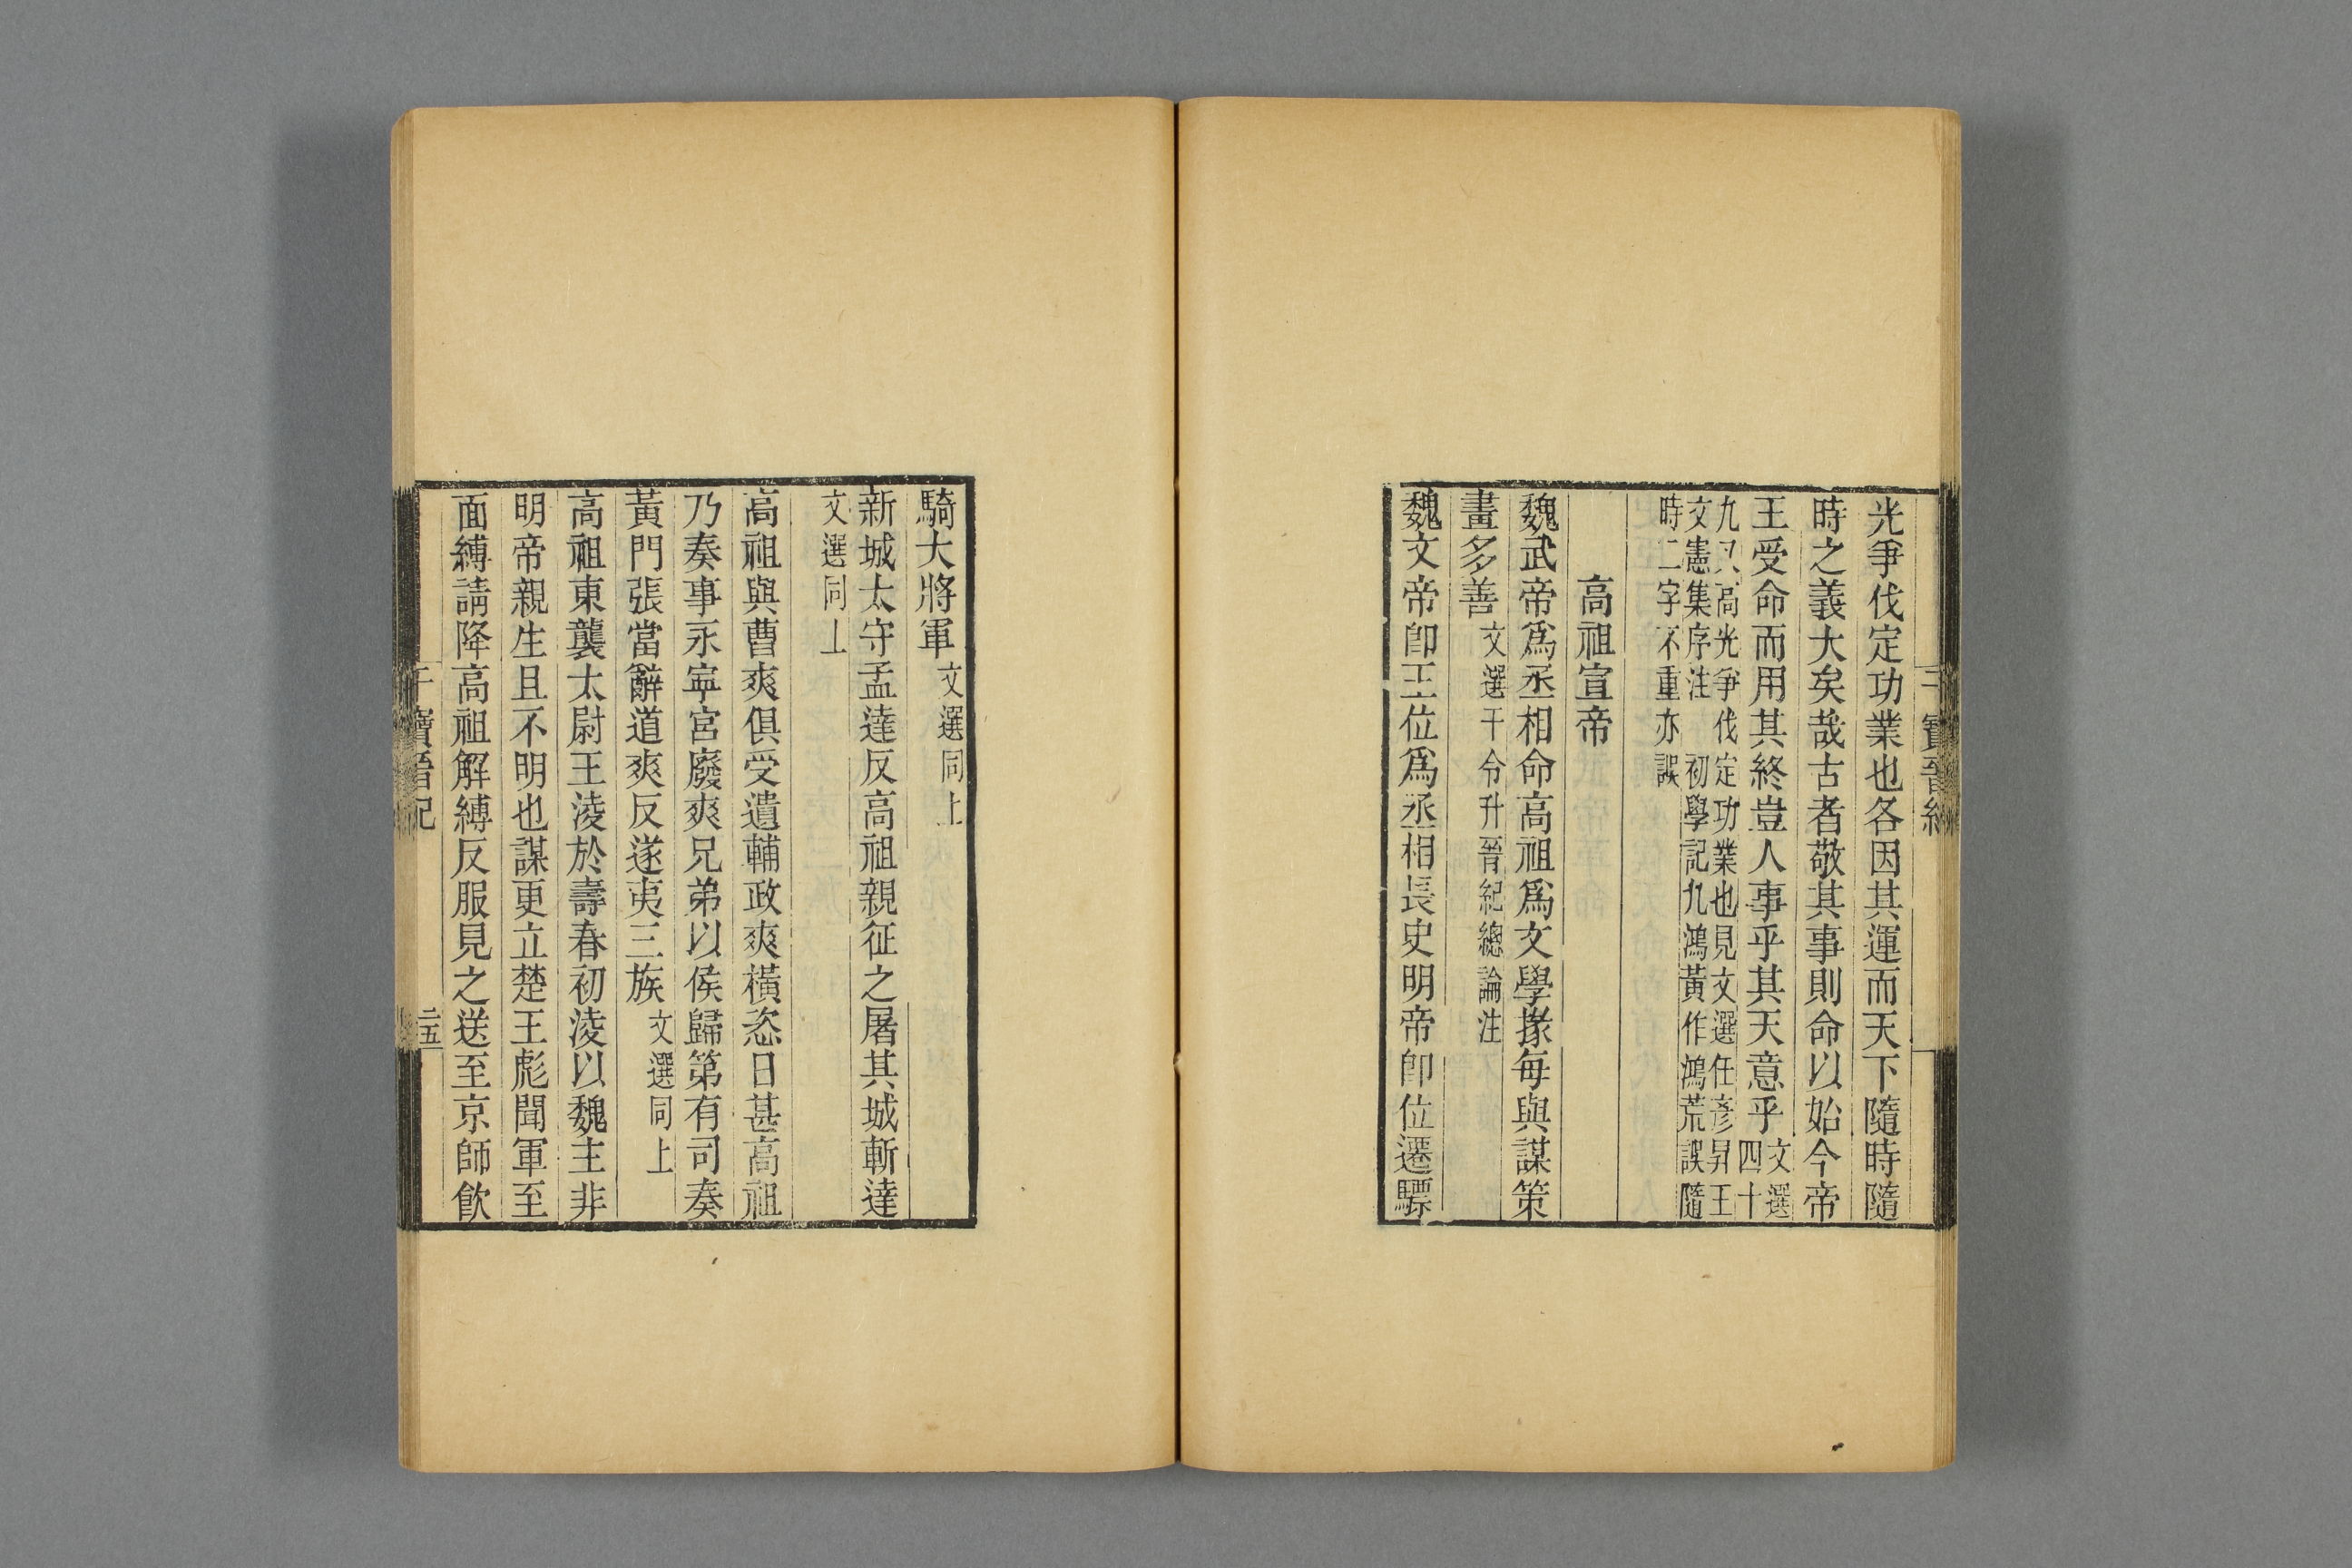 光爭伐定功業也各因其運而天下隨時隨
時之義大矣哉古者敬其事則命以始今帝
王受命而用其終豈人事乎其天意乎文選四十
九又高光爭伐定功業也見文選任彥昇王
文憲集序注 初學記九鴻黃作鴻荒誤隨
時二字不重亦誤
高祖宣帝
魏武帝爲丞相命高祖爲文學掾每與謀策
畫多善文選干令升晉紀總論注
魏文帝卽王位爲丞相長史明帝卽位遷驃
騎大將軍文選同上
新城太守孟達反高祖親征之屠其城斬達
文選同上
高祖與曹爽俱受遺輔政爽橫恣日甚高祖
乃奏事永寧宮廢爽兄弟以侯歸第有司奏
黃門張當辭道爽反遂夷三族文選同上
高祖東襲太尉王淩於壽春初淩以魏主非
明帝親生且不明也謀更立楚王彪聞軍至
面縛請降高祖解縛反服見之送至京師飮
干寶晉紀 二五